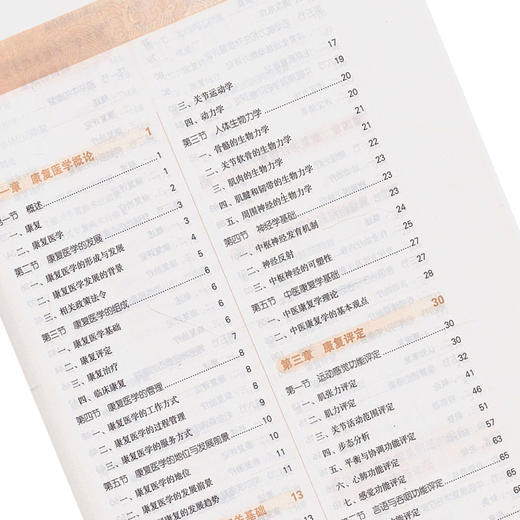 一章 康复医学概论 1
第一节 概述 1
一、康复 1
二、康复医学 2
第二节 康复医学的发展 3
一、康复医学的形成与发展 3
二、康复医学发展的背景 4
三、相关政策法令 6
第三节 康复医学的组成 6
一、康复医学基础 6
二、康复评定 6
三、康复治疗 7
四、临床康复 8
第四节 康复医学的管理 8
一、康复医学的工作方式 8
二、康复医学的过程管理 9
三、康复医学的服务方式 10
第五节 康复医学的地位与发展前景 10
一、康复医学的地位 10
二、康复医学的发展前景 11
康复医学的发展趋势 11
基础 13
三、关节运动学 17
四、动力学 19
第三节 人体生物力学 20
一、骨骼的生物力学 20
二、关节软骨的生物力学 21
三、肌肉的生物力学 21
四、肌腱和韧带的生物力学 22
五、周围神经的生物力学 23
第四节 神经学基础 23
一、中枢神经发育机制 24
二、神经反射 24
三、中枢神经的可塑性 25
第五节 中医康复学基础 27
一、中医康复学理论 27
二、中医康复学的基本观点 28
第三章 康复评定 30
第一节 运动感觉功能评定 30
一、肌张力评定 30
二、肌力评定 32
三、关节活动范围评定 41
四、步态分析 46
五、平衡与协调功能评定 51
六、心肺功能评定 57
七、感觉功能评定 63
第二节 言语与吞咽功能评定 65
功能评定 65
68